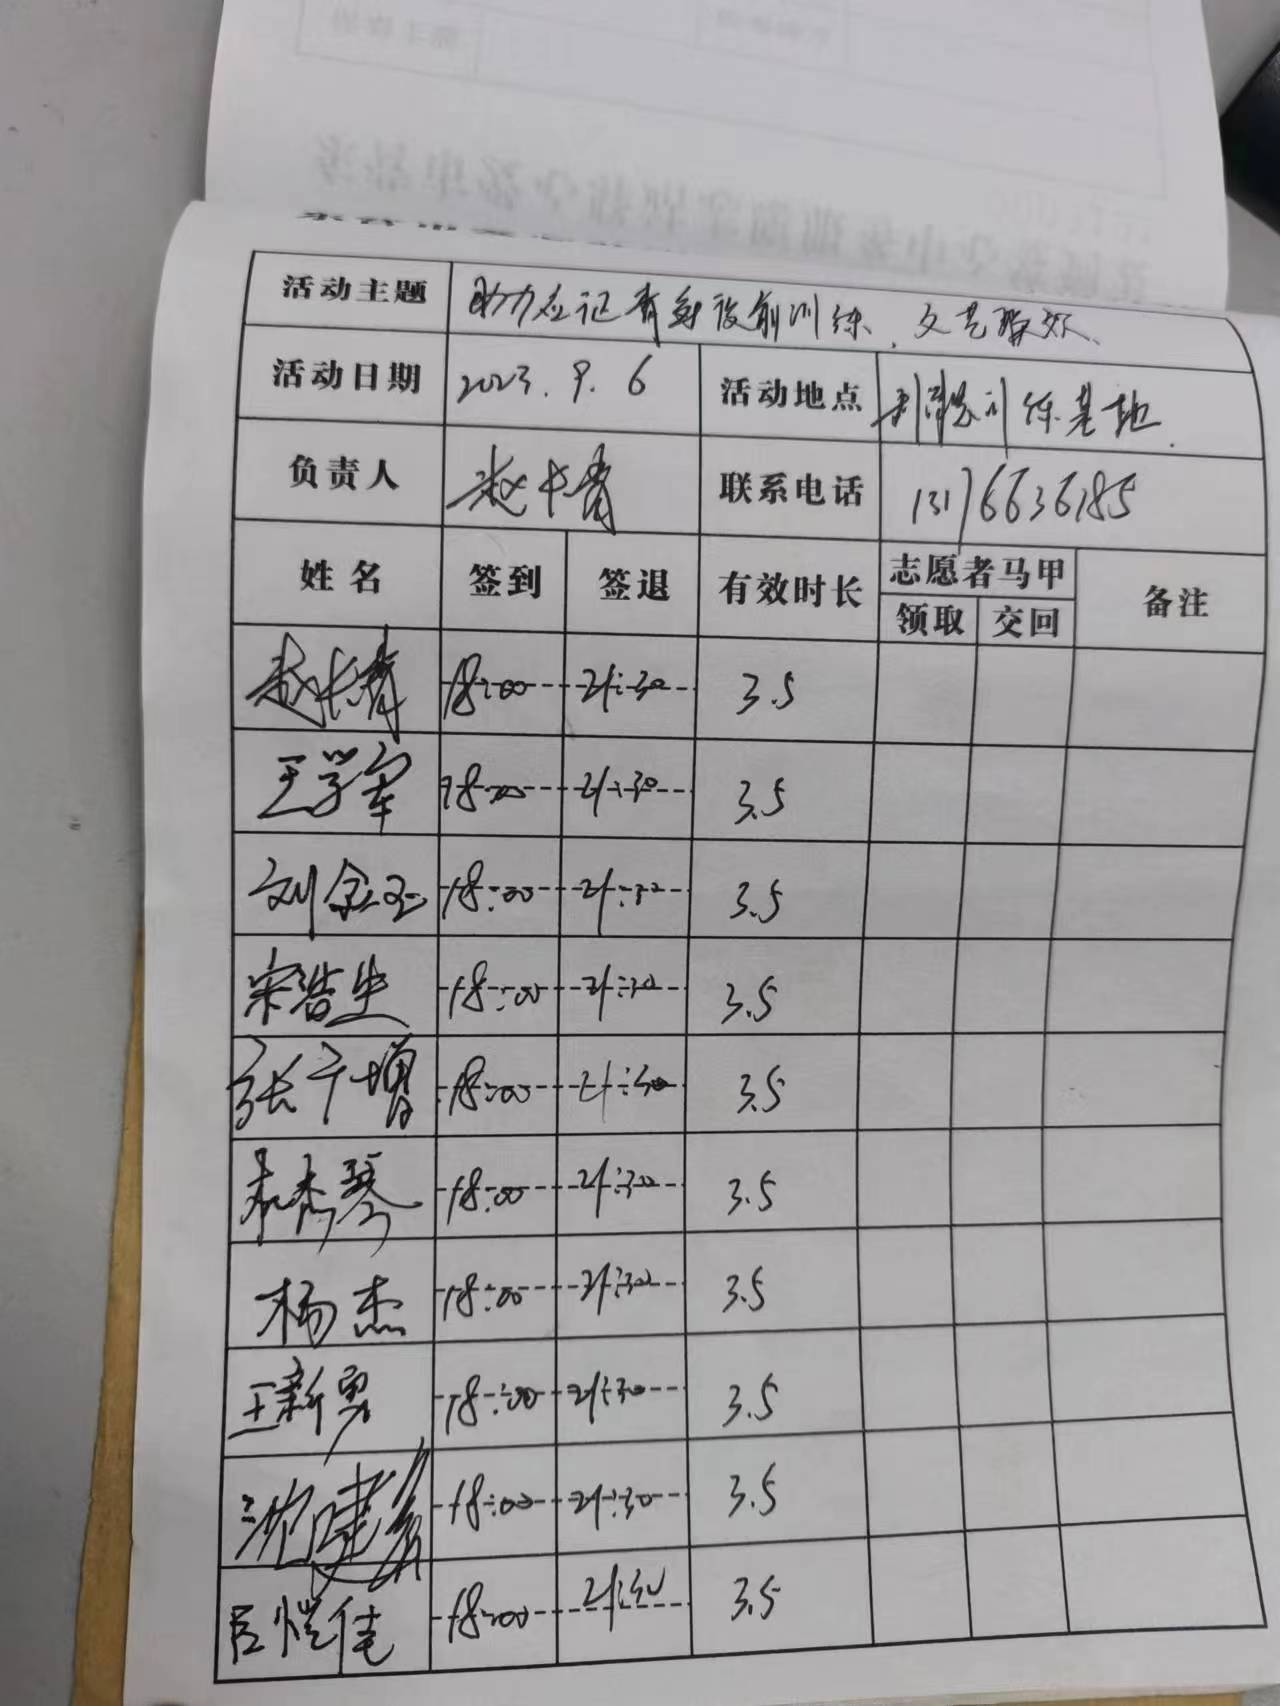 活动主题 助力应征青年役前训练、文艺联欢、
活动日期 2023.9.6 活动地点 训练基地
负责人 赵长青 联系电话 13176636185
姓名 签到 签退 有效时长 志愿者马甲 备注
领取 交回
赵长青 18:00 21:30 3.5
王学军 18:00 21:30 3.5
刘金玉 18:00 21:30 3.5
宋浩生 18:00 21:30 3.5
张干增 18:00 21:30 3.5
18:00 21:30 3.5
杨杰 18:00 21:30 3.5
王新勇 18:00 21:30 3.5
18:00 21:30 3.5
恺佳 18:00 21:30 3.5